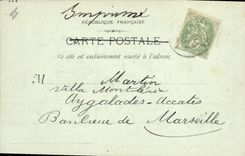 Imprimé
RÉPUBLIQUE FRANÇAISE
CARTE POSTALE
Ce côté est exclusivement réservé à l'adresse
M Martin
villa
Aygalades-Accates
Banlieue de Marseille